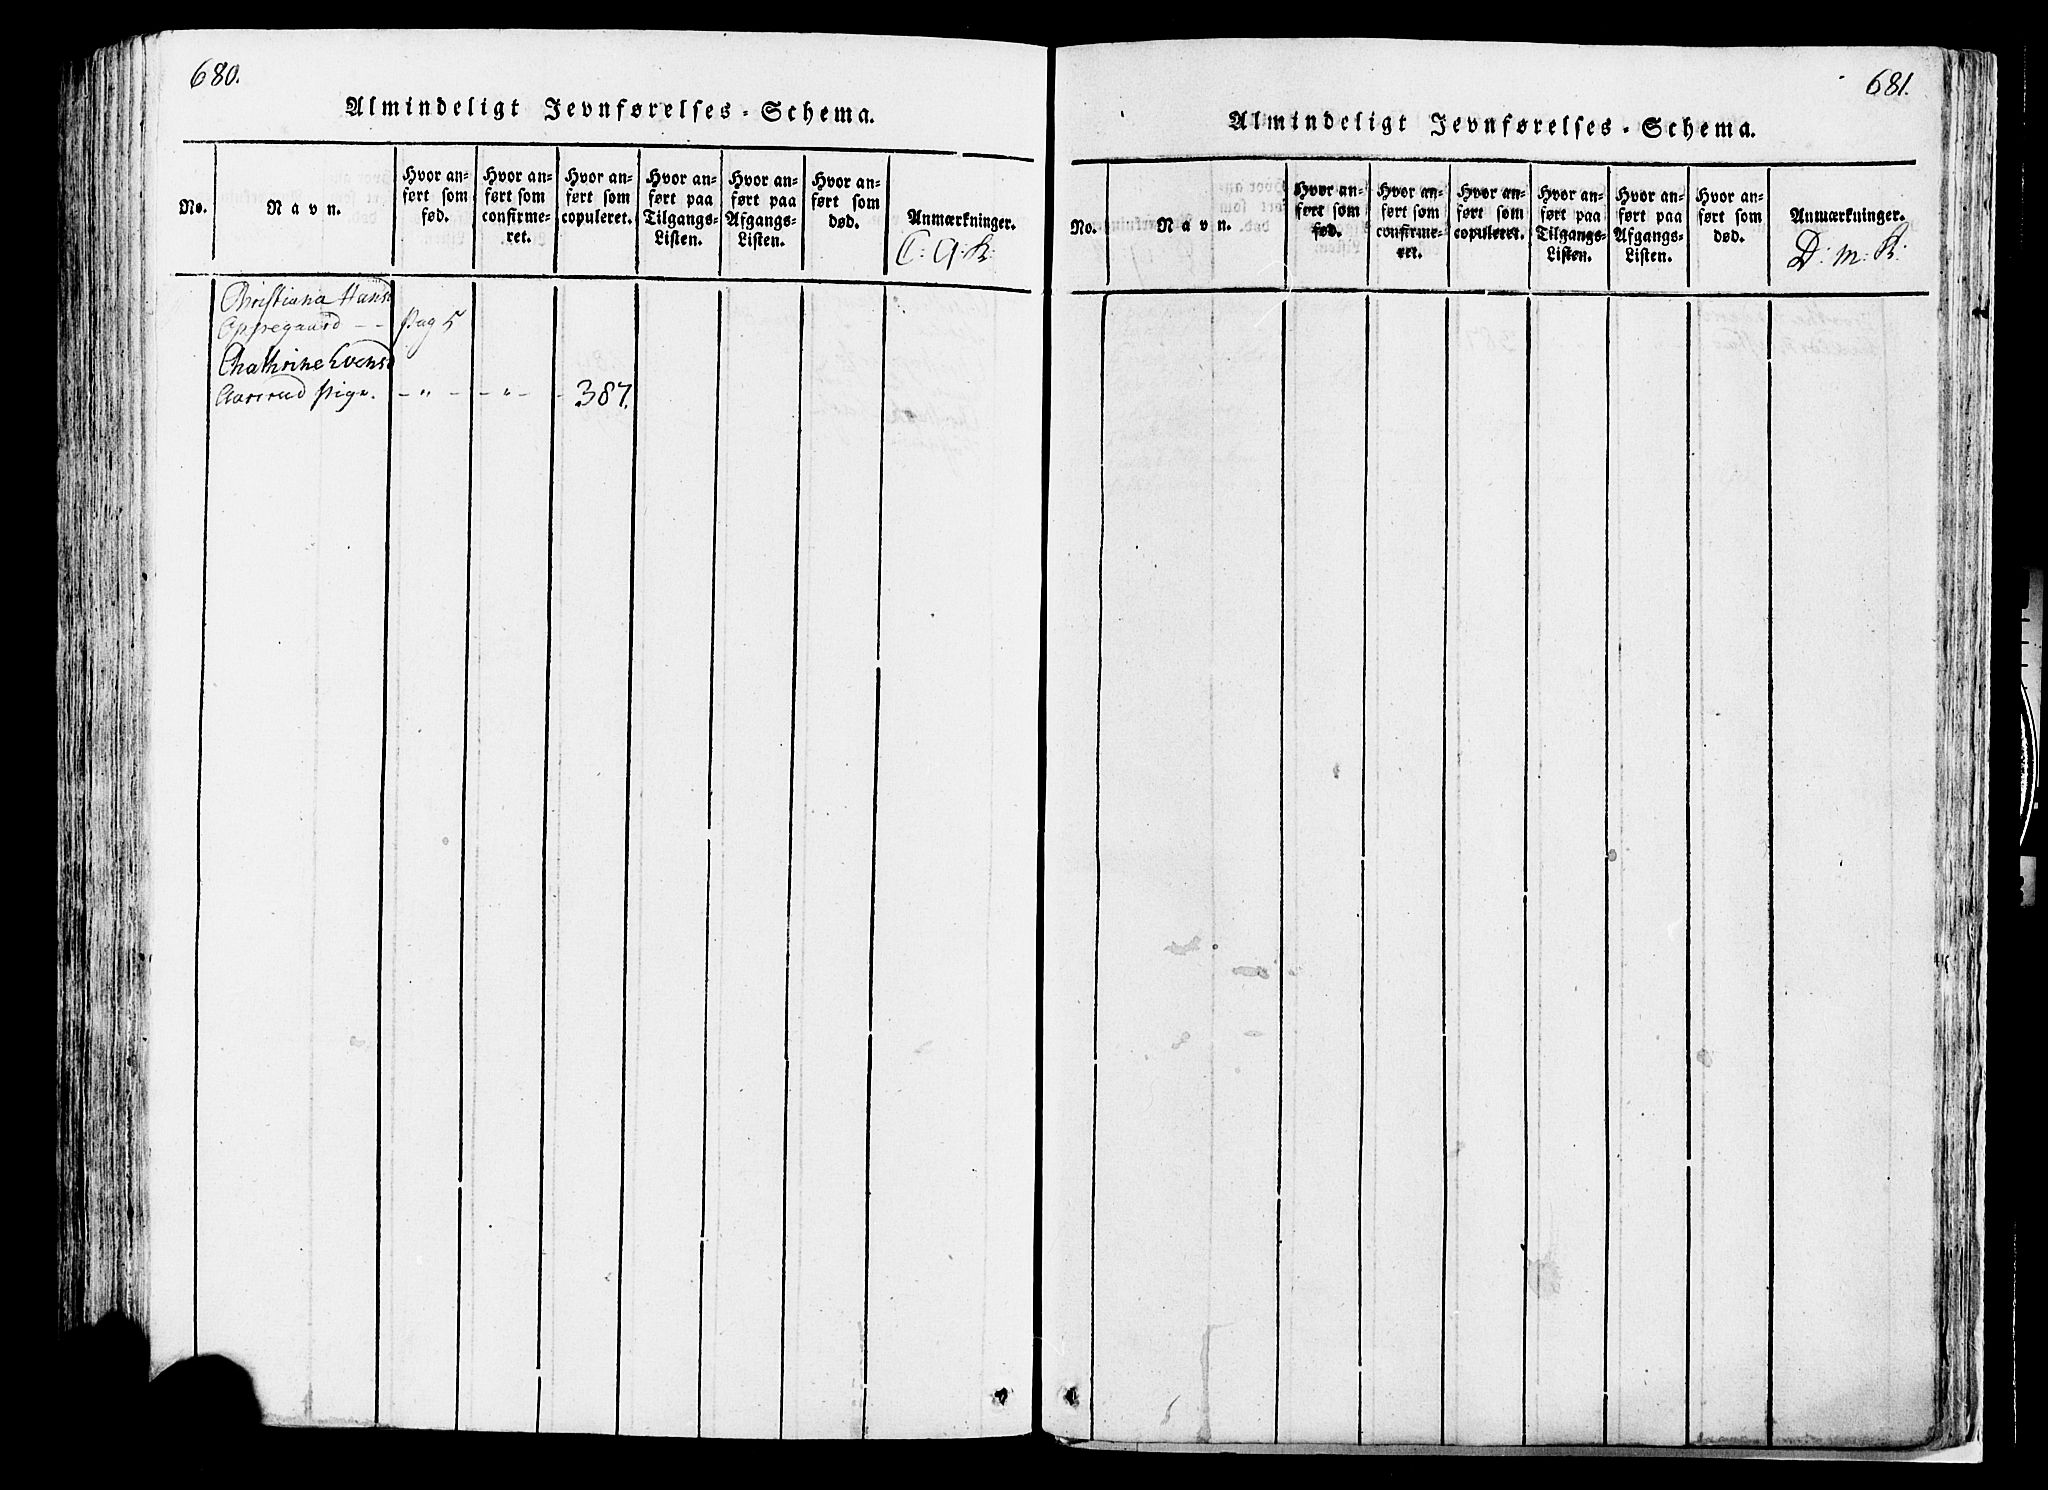 680.
Almindeligt Jevnførelses-Schema.
No.
Navn.
Hvor an-
ført som
fød.
Hvor an-
ført som
confirme-
ret.
Hvor an-
ført som
copuleret.
Hvor an-
ført paa
Tilgangs-
Listen.
Hvor an-
ført paa
Afgangs-
Listen.
Hvor an-
ført som
død.
Anmærkninger.
C: Q: K:
Christiana Hansd
Oppegaard - - Pag 5
Chathrine Evensd
Aaserud Pige. - " - - " - - 387.
681.
Almindeligt Jevnførelses-Schema.
No.
Navn.
Hvor an-
ført som
fød.
Hvor an-
ført som
confirme-
ret.
Hvor an-
ført som
copuleret.
Hvor an-
ført paa
Tilgangs-
Listen.
Hvor an-
ført paa
Afgangs-
Listen.
Hvor an-
ført som
død.
Anmærkninger.
D: M: K: